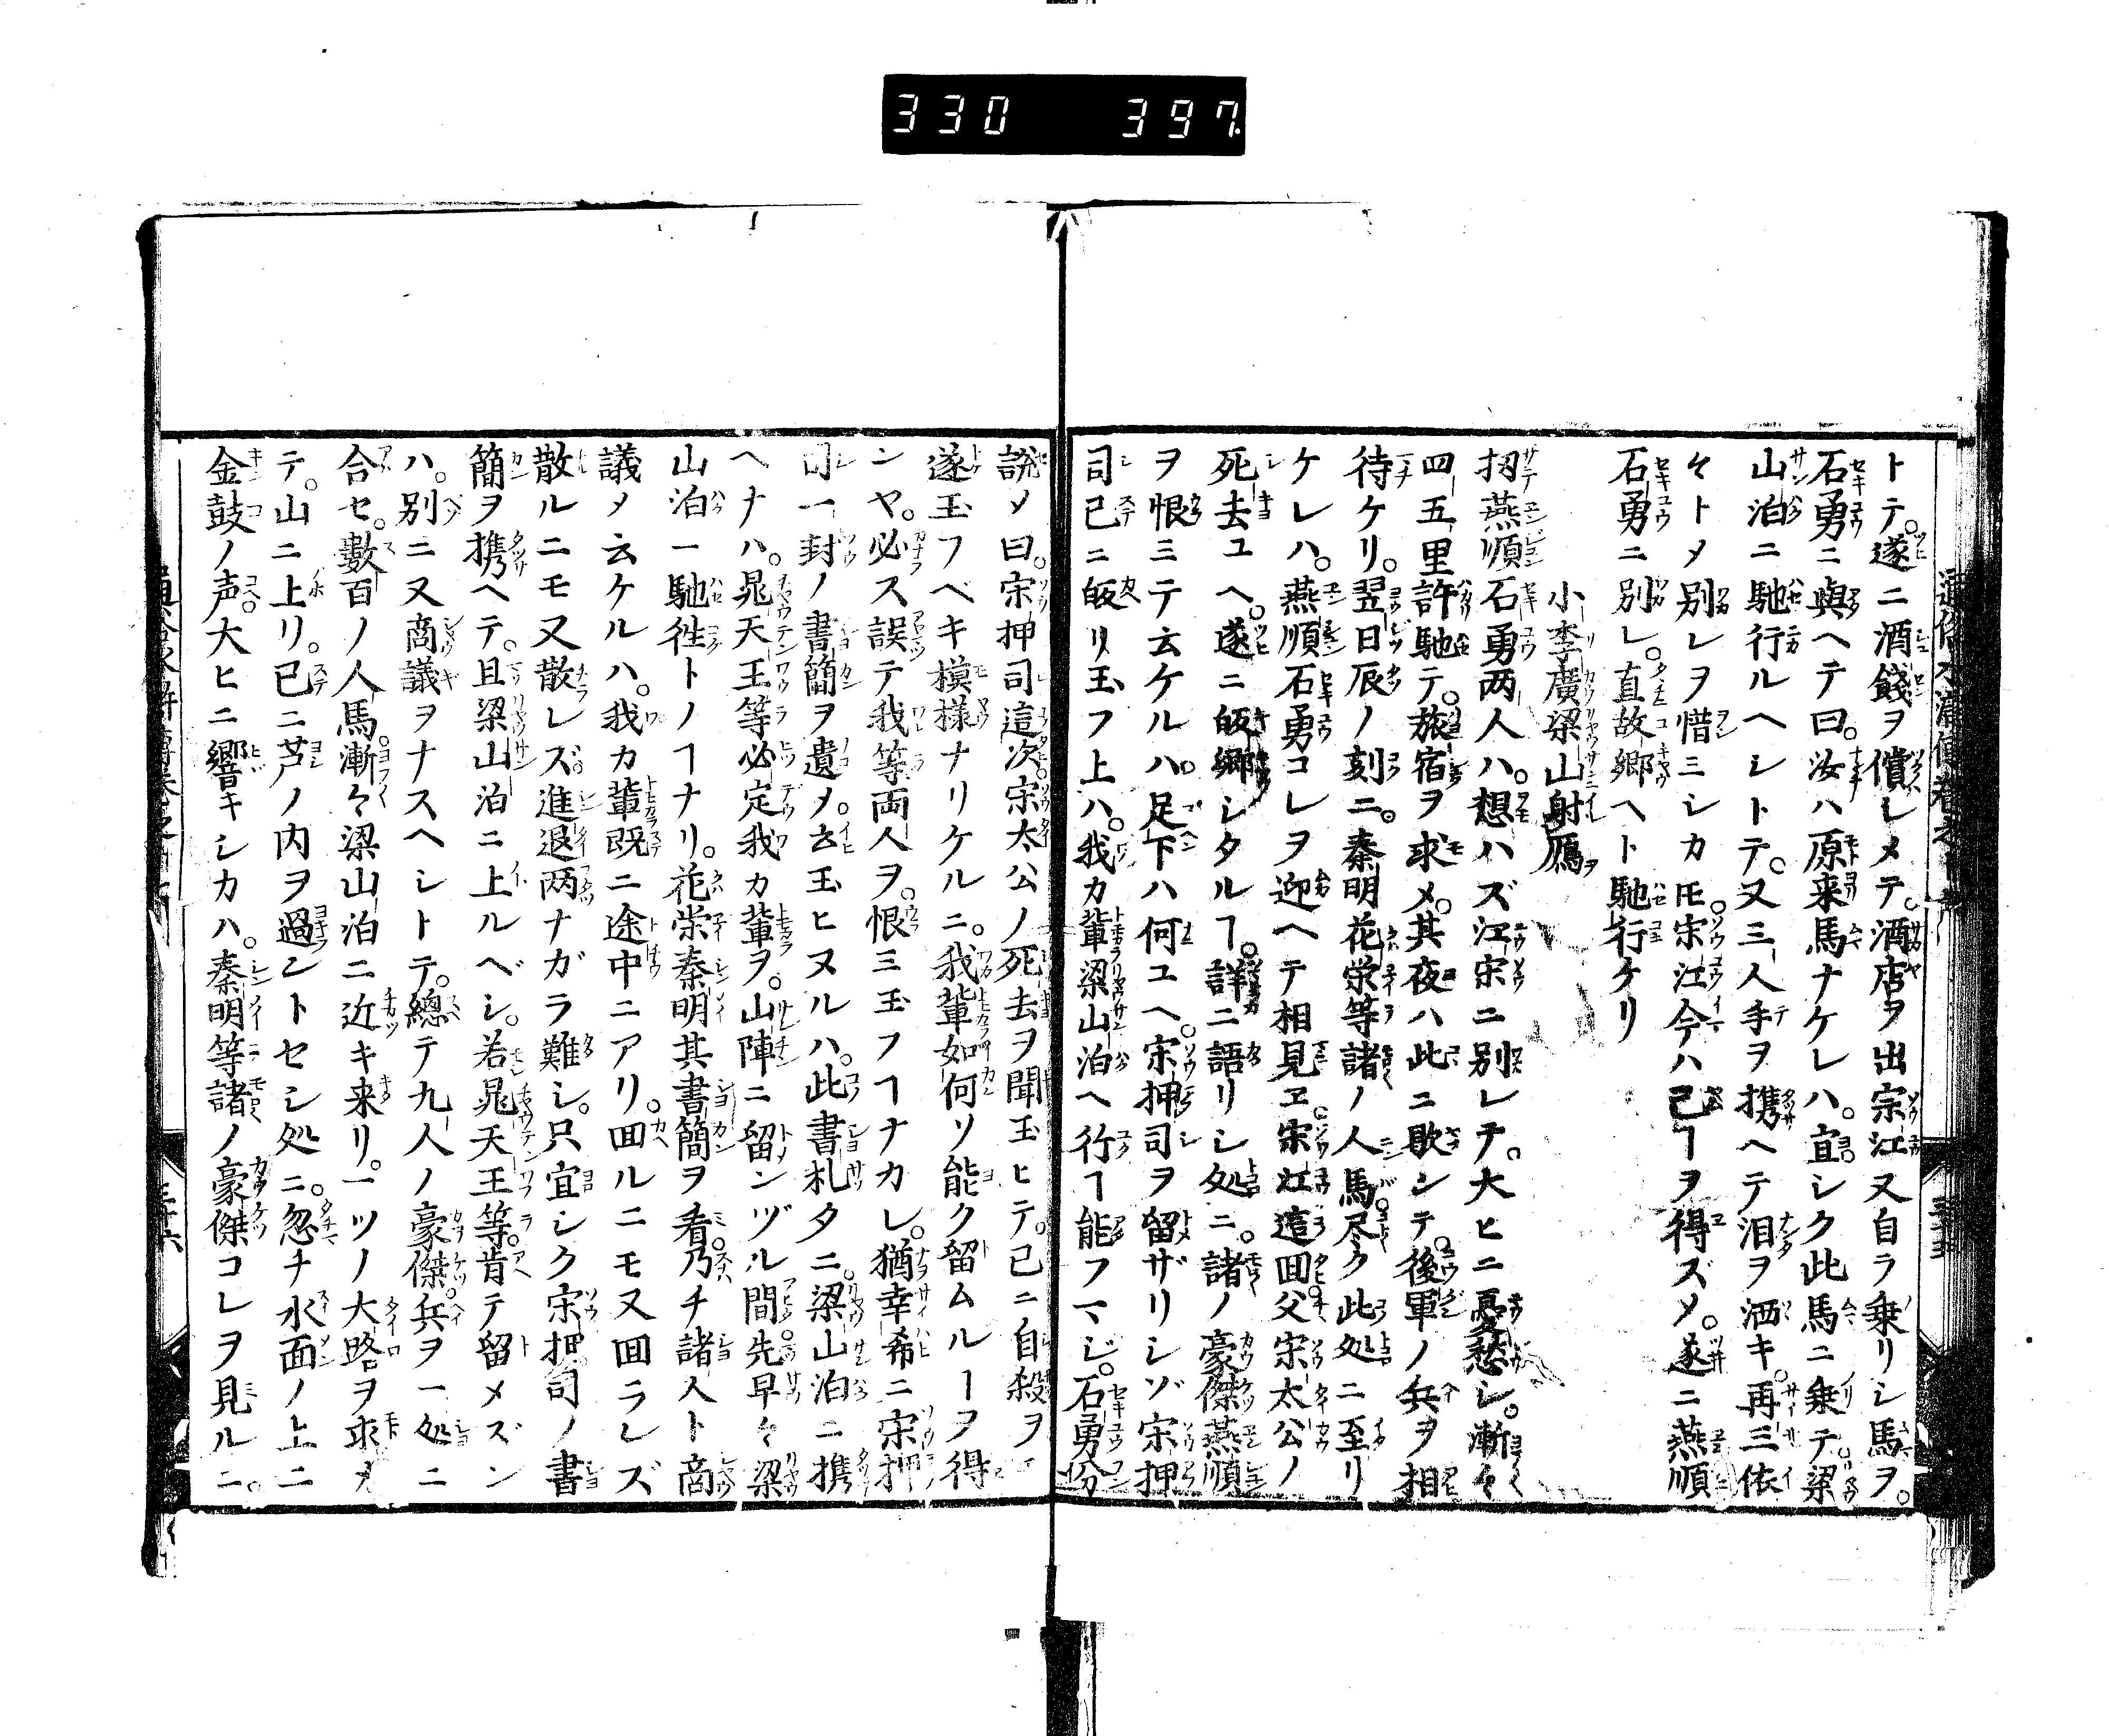 330 397
トテ。遂ニ酒錢ヲ償レメテ。酒店ヲ出宗江又自ラ乗リシ馬ヲ。
石勇ニ與ヘテ曰。汝ハ原来馬ナケレハ。宜シク此馬ニ乗テ。梁
山泊ニ馳行ルヘシトテ。又三人手ヲ携ヘテ泪ヲ洒キ。再三依
々トメ別レヲ惜ミシカ𪜈。宋江今ハ已ヿヲ得ズメ。遂ニ燕順
石勇ニ別レ。直故郷ヘト馳行ケリ
小李廣梁山射鴈
扨燕順石勇两人ハ。想ハズ江宋ニ別レテ。大ヒニ憂愁シ。漸々
四五里許馳テ。旅宿ヲ求メ。其夜ハ此ニ歇シテ。後軍ノ兵ヲ相
待ケリ。翌日辰ノ刻ニ。秦明花栄等諸ノ人馬。尽ク此処ニ至リ
ケレハ。燕順石勇コレヲ迎ヘテ相見ヱ。宋江這回父宋太公ノ
死去ユヘ。遂ニ皈郷シタルヿ。詳ニ語リシ処ニ。諸ノ豪傑燕順
ヲ恨ミテ云ケルハ。足下ハ何ユヘ。宋押司ヲ留ザリシゾ宋押
司已ニ皈リ玉フ上ハ。我カ輩梁山泊ヘ行ヿ能フマジ。石勇分
説メ曰。宋押司這次宋太公ノ死去ヲ聞玉ヒテ。已ニ自殺ヲ
遂玉フベキ模様ナリケルニ。我輩如何ソ能ク留ムルヿヲ得
ンヤ。必ス誤テ我等両人ヲ。恨ミ玉フヿナカレ。猶幸希ニ宋押
司一封ノ書簡ヲ遺メ。云玉ヒヌルハ。此書札タニ。梁山泊ニ携
ヘナハ。晁天王等必定我カ輩ヲ。山陣ニ留ンヅル間。先早々梁
山泊一馳徃トノヿナリ。花栄秦明其書簡ヲ看。乃チ諸人ト商
議メ云ケルハ。我カ輩既ニ途中ニアリ。回ルニモ又回ラレズ
散ルニモ又散レズ。進退两ナガラ難シ。只宜シク宋押司ノ書
簡ヲ携ヘテ。且梁山泊ニ上ルベシ。若晁天王等。肯テ留メズン
ハ。別ニ又商議ヲナスヘシトテ。總テ九人ノ豪傑。兵ヲ一処ニ
合セ。數百ノ人馬。漸々梁山泊ニ近キ来リ。一ツノ大路ヲ求メ
テ。山ニ上リ。已ニ芦ノ内ヲ過ントセシ処ニ。忽チ水面ノ上ニ
金鼓ノ声。大ヒニ響キシカハ。秦明等諸ノ豪傑コレヲ見ルニ。